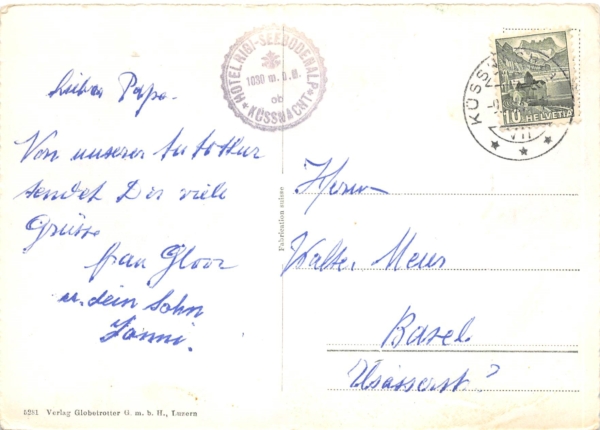 Lieber Papa.
Von unserer Autotour
sendet Dir viele
Grüsse
frau Gloor
u. dein Sohn
HOTEL RIGI-SEEBODENALP
1030 m.ü.M.
ob
* KÜSSNACHT *
KÜSSN
VII
10 HELVETIA
Fabrication suisse
Herrn
Walter Meier
Basel
Elsässerst.
5251 Verlag Globetrotter G. m. b. H., Luzern